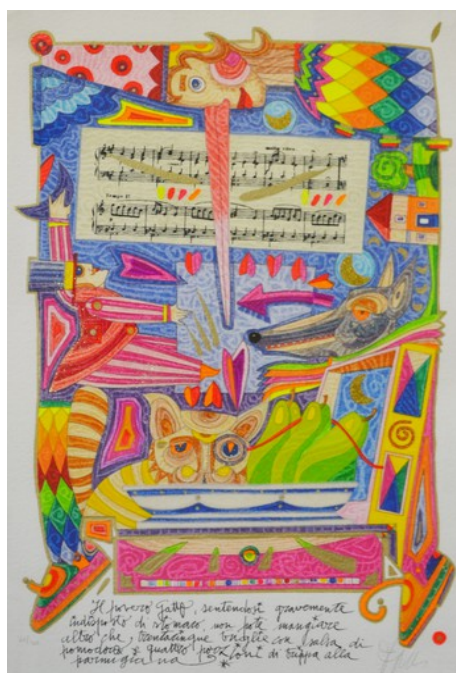 Il povero Gatto, sentendosi gravemente
indisposto di stomaco, non poté mangiare
altro che trentacinque triglie con salsa di
pomodoro e quattro porzioni di trippa alla
parmigiana